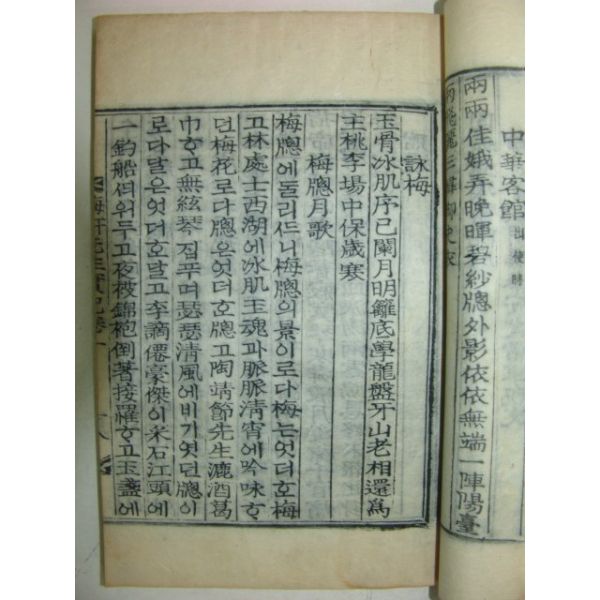 中華客館 出使時
兩兩佳娥弄晩暉碧紗牕外影依依無端一陣陽臺
詠梅
玉骨冰肌序已闌月明籬底學龍盤牙山老相還爲
主桃李場中保歲寒
梅牕月歌
梅牕에둘리드니梅牕의景이로다梅는엇더호梅
고林處士西湖에冰肌玉魂과脈脈淸宵에吟味ᄒᆞ
던梅花로다牕은엇더호牕고陶靖節先生漉酒葛
巾ᄒᆞ고無絃琴집푸며瑟瑟淸風에비기엿던牕이
로다달은엇더호달고李謫僊豪傑이米石江頭에
一釣船ᄯᅴ워두고夜被錦袍倒著接羅ᄒᆞ고玉盞에
梅軒先生實記卷一